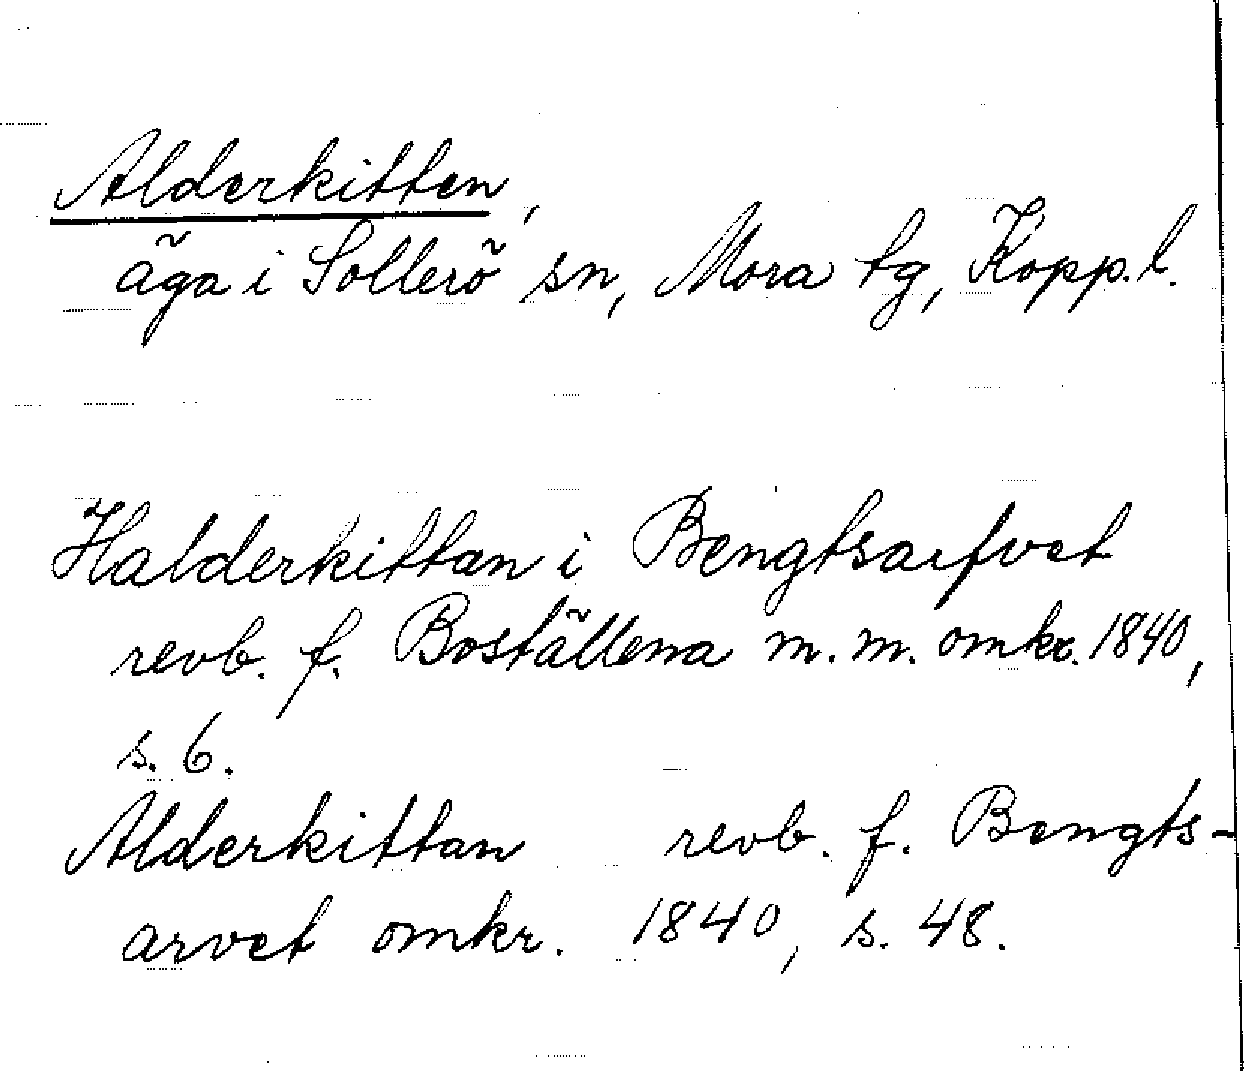 Alderkitten,
äga i Sollerö sn, Mora tg, Kopp. l.
Halderkittan i Bengtsarfvet
revb. f. Boställena m.m. omkr. 1840,
s. 6.
Alderkittan revb. f. Bengts-
arvet omkr. 1840, s. 48.